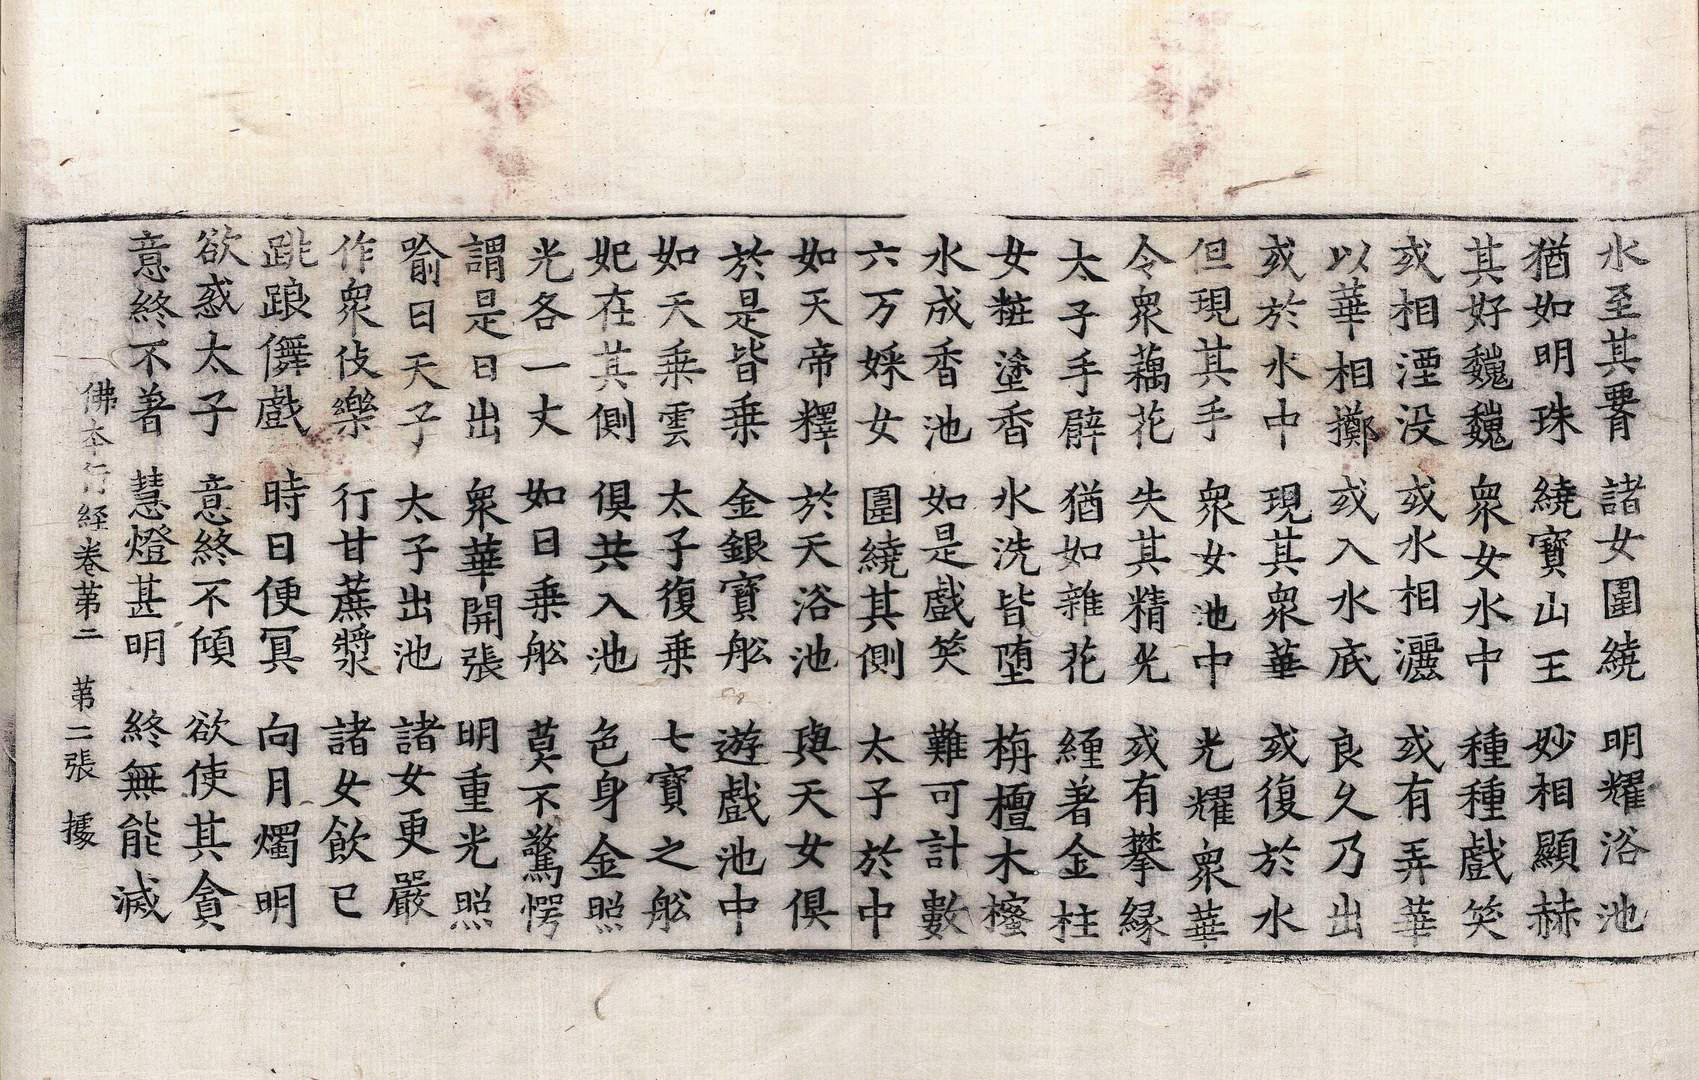 水至其䏚諸女圍繞明耀浴池
猶如明珠繞寶山王妙相顯赫
其好巍巍衆女水中種種戲笑
或相湮没或水相灑或有弄華
以華相擲或入水底良久乃出
或於水中現其衆華或復於水
但現其手衆女池中光耀衆華
令衆藕花失其精光或有攀縁
太子手臂猶如雜花纏著金柱
女粧塗香水洗皆堕栴檀木櫁
水成香池如是戲笑難可計數
六万婇女圍繞其側太子於中
如天帝釋於天浴池與天女俱
於是皆乗金銀寶舩遊戲池中
如天乗雲太子復乗七寶之舩
妃在其側俱共入池色身金照
光各一丈如日乗舩莫不驚愕
謂是日出衆華開張明重光照
喻日天子太子出池諸女更嚴
作衆伎樂行甘蔗漿諸女飲已
跳踉儛戲時日便冥向月燭明
欲惑太子意終不傾欲使其貪
意終不著慧燈甚明終無能滅
佛本行経巻第二 第二張 據